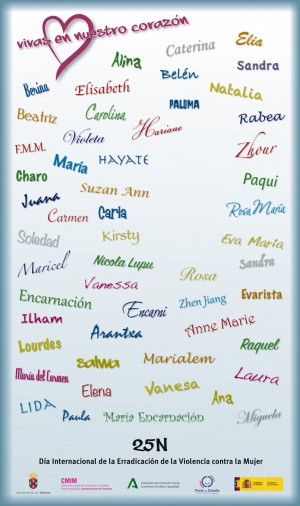 vivas en nuestro corazón
Alina Caterina Elia
Benina Elisabeth Belén Sandra
Natalia
Beatriz Carolina PALOMA Rabea
F.M.M. Violeta Hariane Zhour
María HAYATE
Charo Suzan Ann Paqui
Juana Carmen Carla Rosa María
Soledad Kirsty Eva María
Maricel Nicola Lupu Rosa Sandra
Vanessa
Encarnación Encarni Zhen Jiang Evarista
Ilham Arantxa Anne Marie
Lourdes Salwa Marialem Raquel
María del Carmen Elena Vanesa Laura
LIDA Paula María Encarnación Ana
Miguela
25N
Día Internacional de la Erradicación de la Violencia contra la Mujer
CMIM